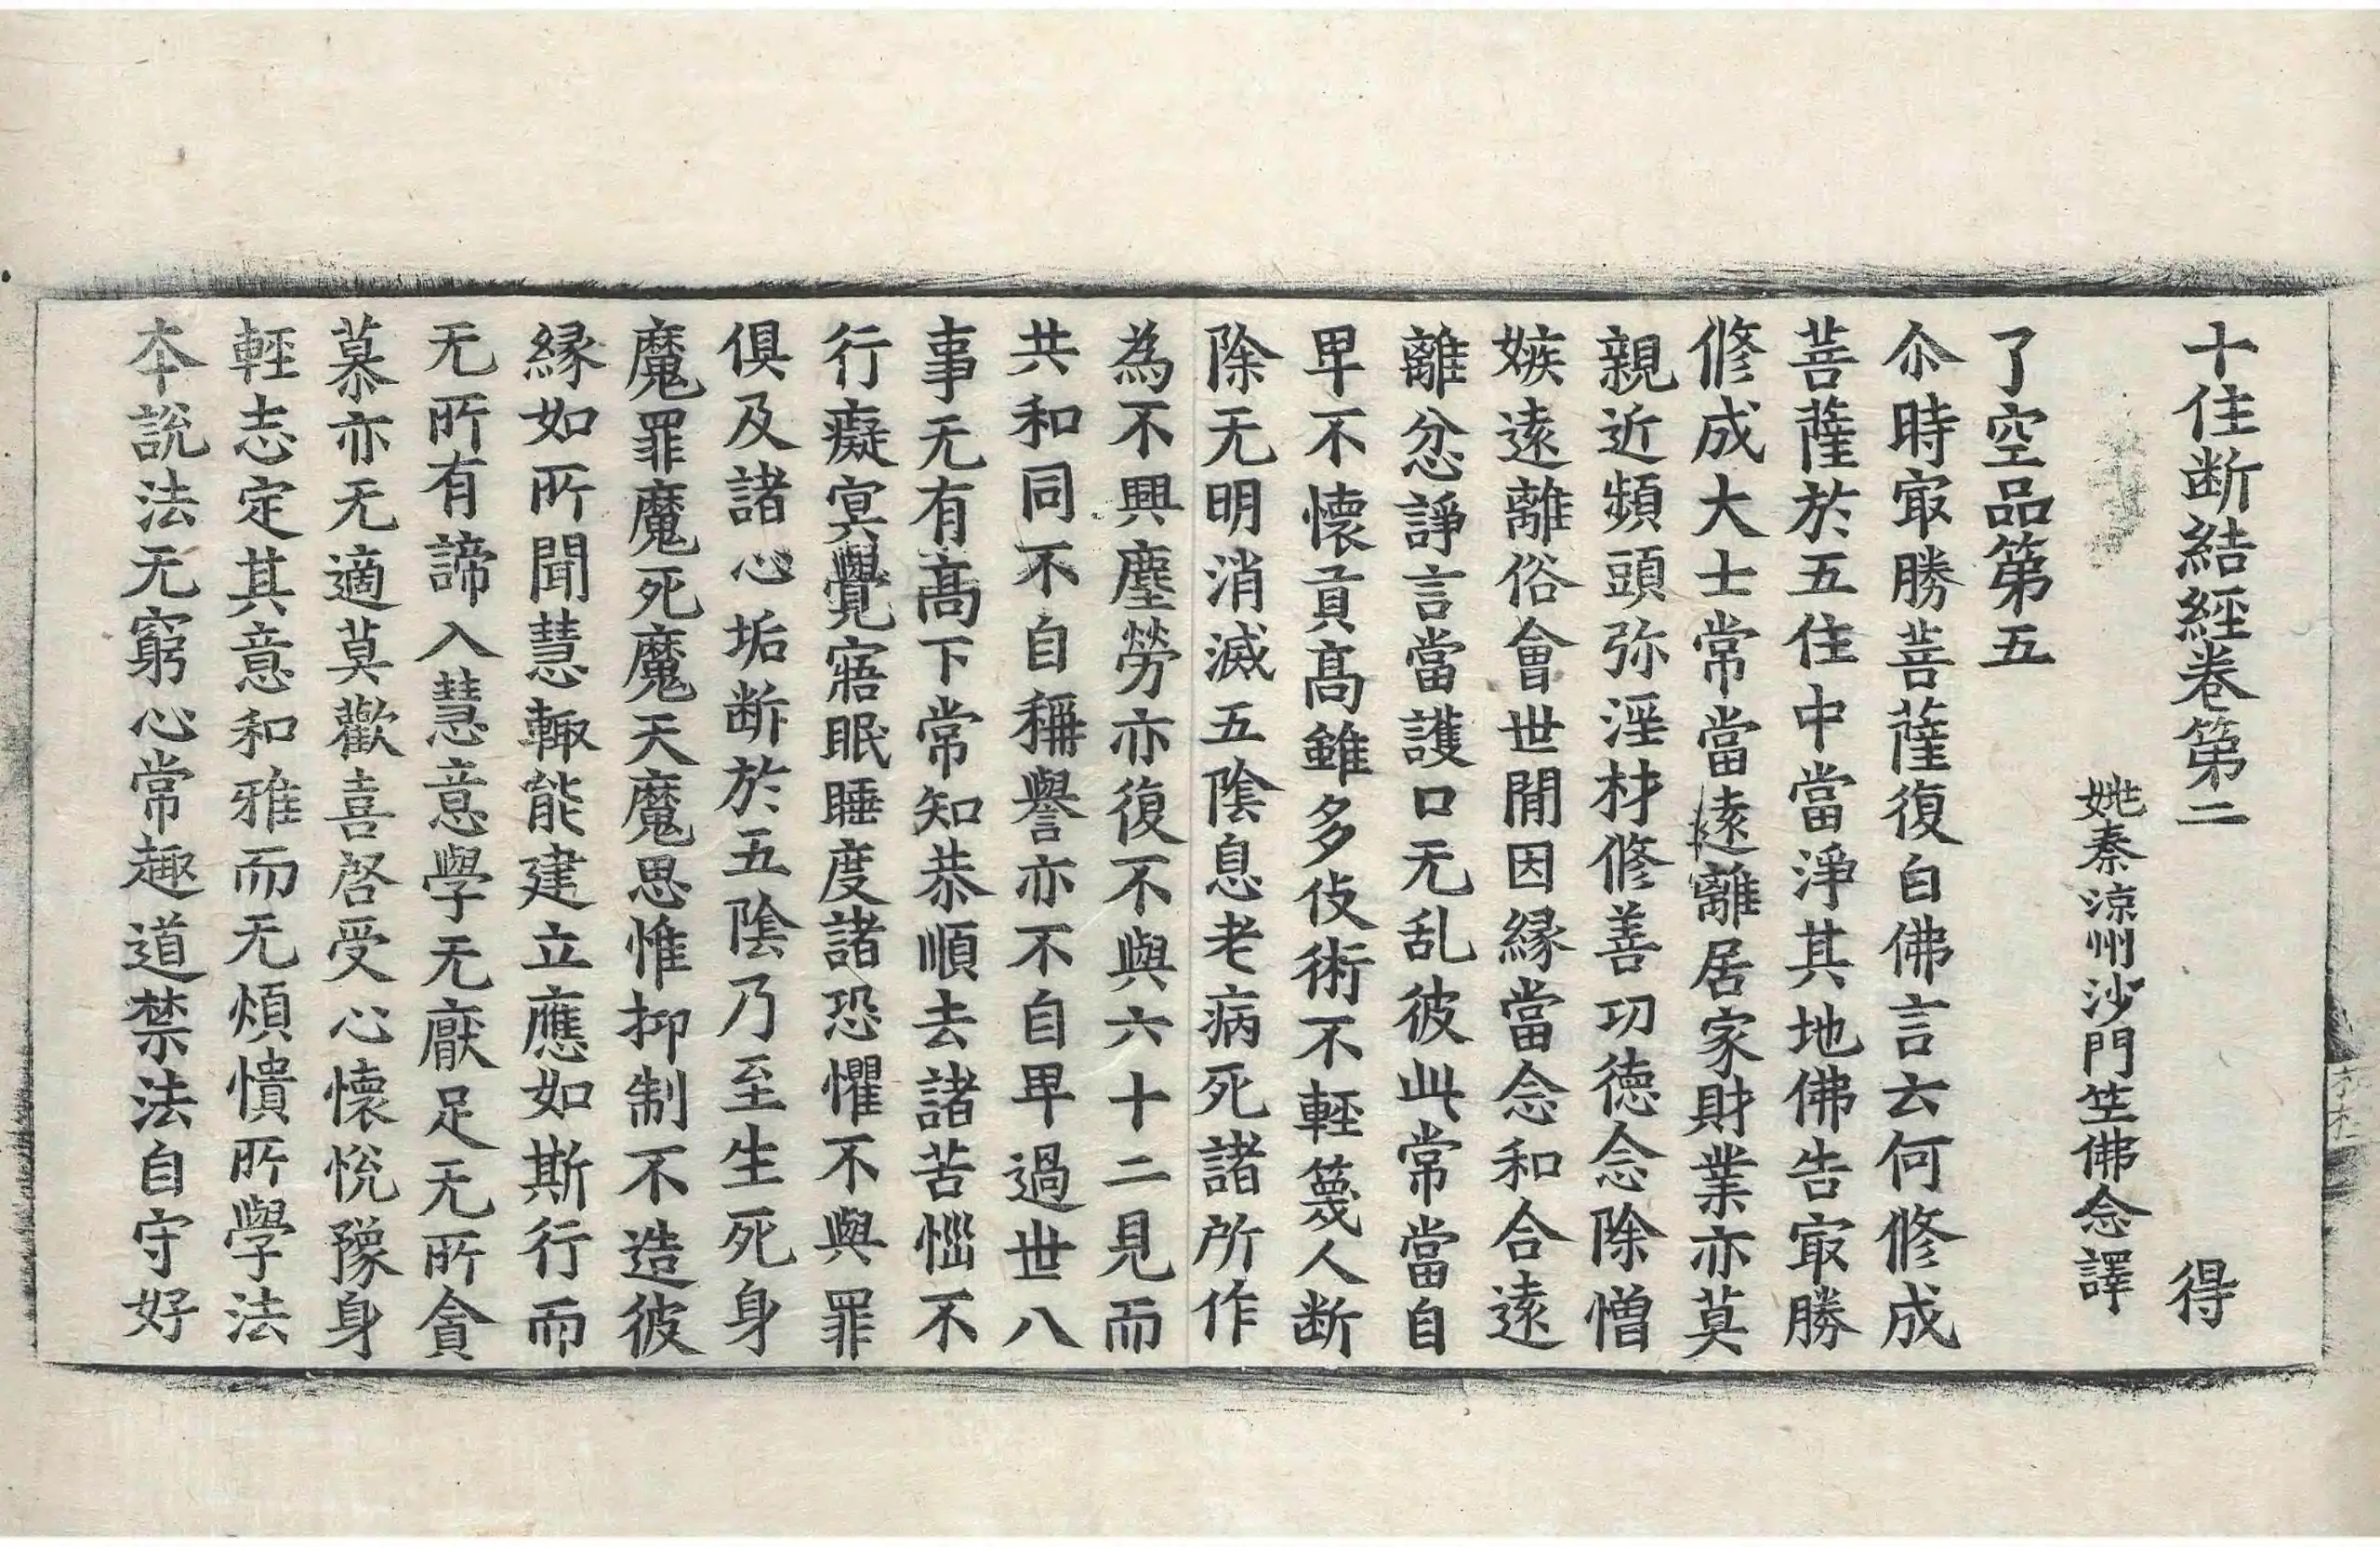 十住断結經卷第二 得
姚秦涼州沙門竺佛念譯
了空品第五
尒時㝡勝菩薩復白佛言云何修成
菩薩於五住中當淨其地佛告㝡勝
修成大士常當遠離居家財業亦莫
親近頻頭弥淫村修善功德念除憎
嫉遠離俗會世閒因縁當念和合遠
離忿諍言當護口无乱彼此常當自
卑不懷貢髙雖多伎術不輕篾人断
除无明消滅五陰息老病死諸所作
為不興塵勞亦復不與六十二見而
共和同不自稱譽亦不自卑過世八
事无有髙下常知恭順去諸苦惱不
行癡冥覺寤眠睡度諸恐懼不與罪
俱及諸心垢断於五陰乃至生死身
魔罪魔死魔天魔思惟抑制不造彼
縁如所聞慧輙能建立應如斯行而
无所有諦入慧意學无厭足无所貪
慕亦无適莫歡喜啓受心懷悅豫身
輕志定其意和雅而无煩憒所學法
本說法无窮心常趣道禁法自守好